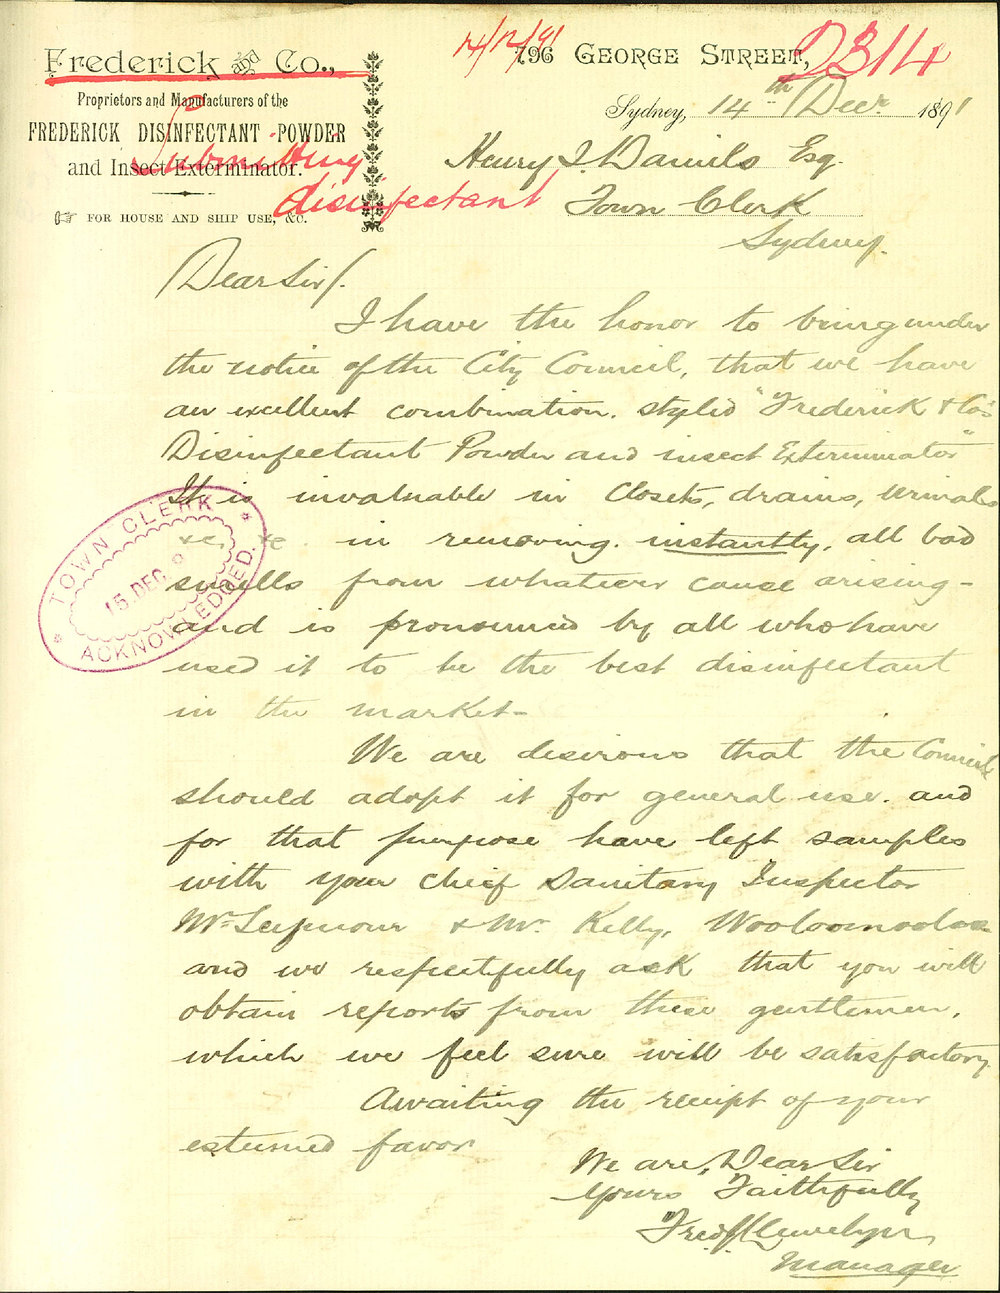 Frederick and Co.,
Proprietors and Manufacturers of the
FREDERICK DISINFECTANT POWDER
and Insect Exterminator.
FOR HOUSE AND SHIP USE, &C.
Submitting
disinfectant
14/12/91
2314
796 GEORGE STREET,
Sydney, 14th Decr. 1891
Henry Daniels Esq.
Town Clerk
Sydney.
Dear Sir/.
I have the honor to bring under
the notice of the City Council, that we have
an excellent combination. styled "Frederick & Co's
Disinfectant Powder and insect Exterminator"
It is invaluable in Closets, drains, urinals
&c. &c. in removing. instantly, all bad
smells from whatever cause arising-
and is pronounced by all who have
used it to be the best disinfectant
in the market-
We are desirous that the Council
should adopt it for general use. and
for that purpose have left samples
with your Chief Sanitary Inspector
Mr Seymour & Mr. Kelly, Wooloomooloo
and we respectfully ask that you will
obtain reports from these gentlemen,
which we feel sure will be satisfactory
Awaiting the receipt of your
esteemed favor
We are, Dear Sir
Yours Faithfully
Fred Llewelyn
Manager
TOWN CLERK
15. DEC
ACKNOWLEDGED.